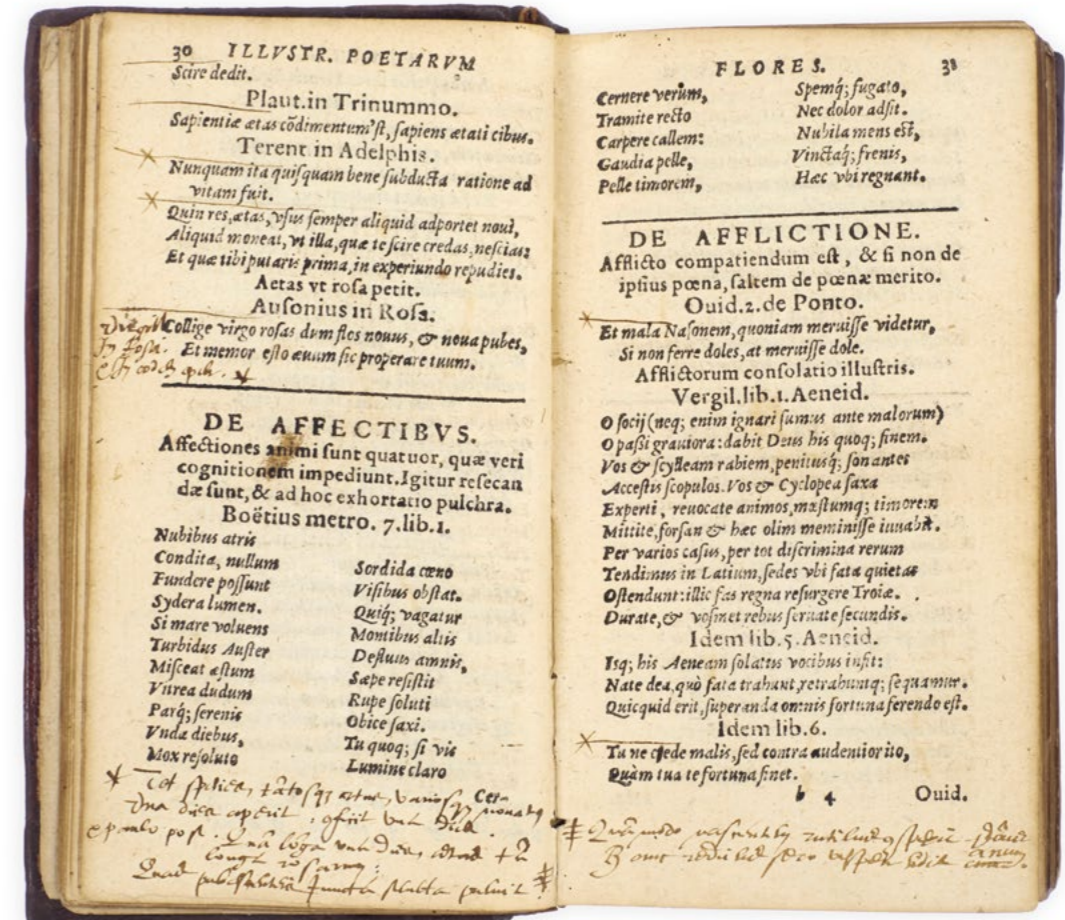 30 ILLVSTR. POETARVM
Scire dedit.
Plaut.in Trinummo.
Sapientiæ ætas cõdimentum'st, sapiens ætati cibus.
Terent in Adelphis.
Nunquam ita quisquam bene subducta ratione ad
vitam fuit.
Quin res, ætas, vsus semper aliquid adportet noui,
Aliquid moneat, vt illa, quæ te scire credas, nescias:
Et quæ tibi putaris prima, in experiundo repudies.
Aetas vt rosa petit.
Ausonius in Rosa.
Collige virgo rosas dum flos nouus, & noua pubes,
Et memor esto æuum sic properare tuum.
DE AFFECTIBVS.
Affectiones animi sunt quatuor, quæ veri
cognitionem impediunt. Igitur resecan
dæ sunt, & ad hoc exhortatio pulchra.
Boëtius metro. 7.lib.1.
Nubibus atris
Condita, nullum
Fundere possunt
Sydera lumen.
Si mare voluens
Turbidus Auster
Misceat æstum
Vitrea dudum
Parq́; serenis
Vnda diebus,
Mox resoluto
Sordida cœno
Visibus obstat.
Quiq́; vagatur
Montibus altis
Defluus amnis,
Sæpe resistit
Rupe soluti
Obice saxi.
Tu quoq; si vis
Lumine claro
Cer-
FLORES. 31
Cernere verum,
Tramite recto
Carpere callem:
Gaudia pelle,
Pelle timorem,
Spemq́; fugato,
Nec dolor adsit.
Nubila mens est,
Vinctaq́; frenis,
Hæc vbi regnant.
DE AFFLICTIONE.
Afflicto compatiendum est, & si non de
ipsius pœna, saltem de pœnæ merito.
Ouid.2.de Ponto.
Et mala Nasonem, quoniam meruisse videtur,
Si non ferre doles, at meruisse dole.
Afflictorum consolatio illustris.
Vergil.lib.1.Aeneid.
O socij (neq; enim ignari sumus ante malorum)
O paßi grauiora: dabit Deus his quoq; finem.
Vos & scylleam rabiem, penitusq́; sonantes
Accestis scopulos. Vos & Cyclopea saxa
Experti, reuocate animos, mæstumq; timorem
Mittite, forsan & hæc olim meminisse iuuabit.
Per varios casus, per tot discrimina rerum
Tendimus in Latium, sedes vbi fata quietas
Ostendunt: illic fas regna resurgere Troiæ.
Durate, & vosmet rebus seruate secundis.
Idem lib.5.Aeneid.
Isq; his Aeneam solatus vocibus infit:
Nate dea, quò fata trahunt, retrahuntq; sequamur.
Quicquid erit, superanda omnis fortuna ferendo est.
Idem lib.6.
Tu ne cede malis, sed contra audentior ito,
Quàm tua te fortuna sinet.
b 4 Ouid.